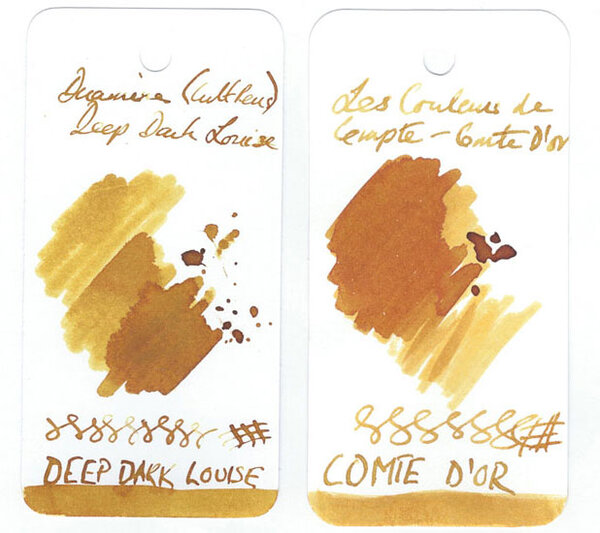 Diamine (Cult Pens)
Deep Dark Louise
DEEP DARK LOUISE
Les Couleurs de
Compte - Comte D'or
COMTE D'OR